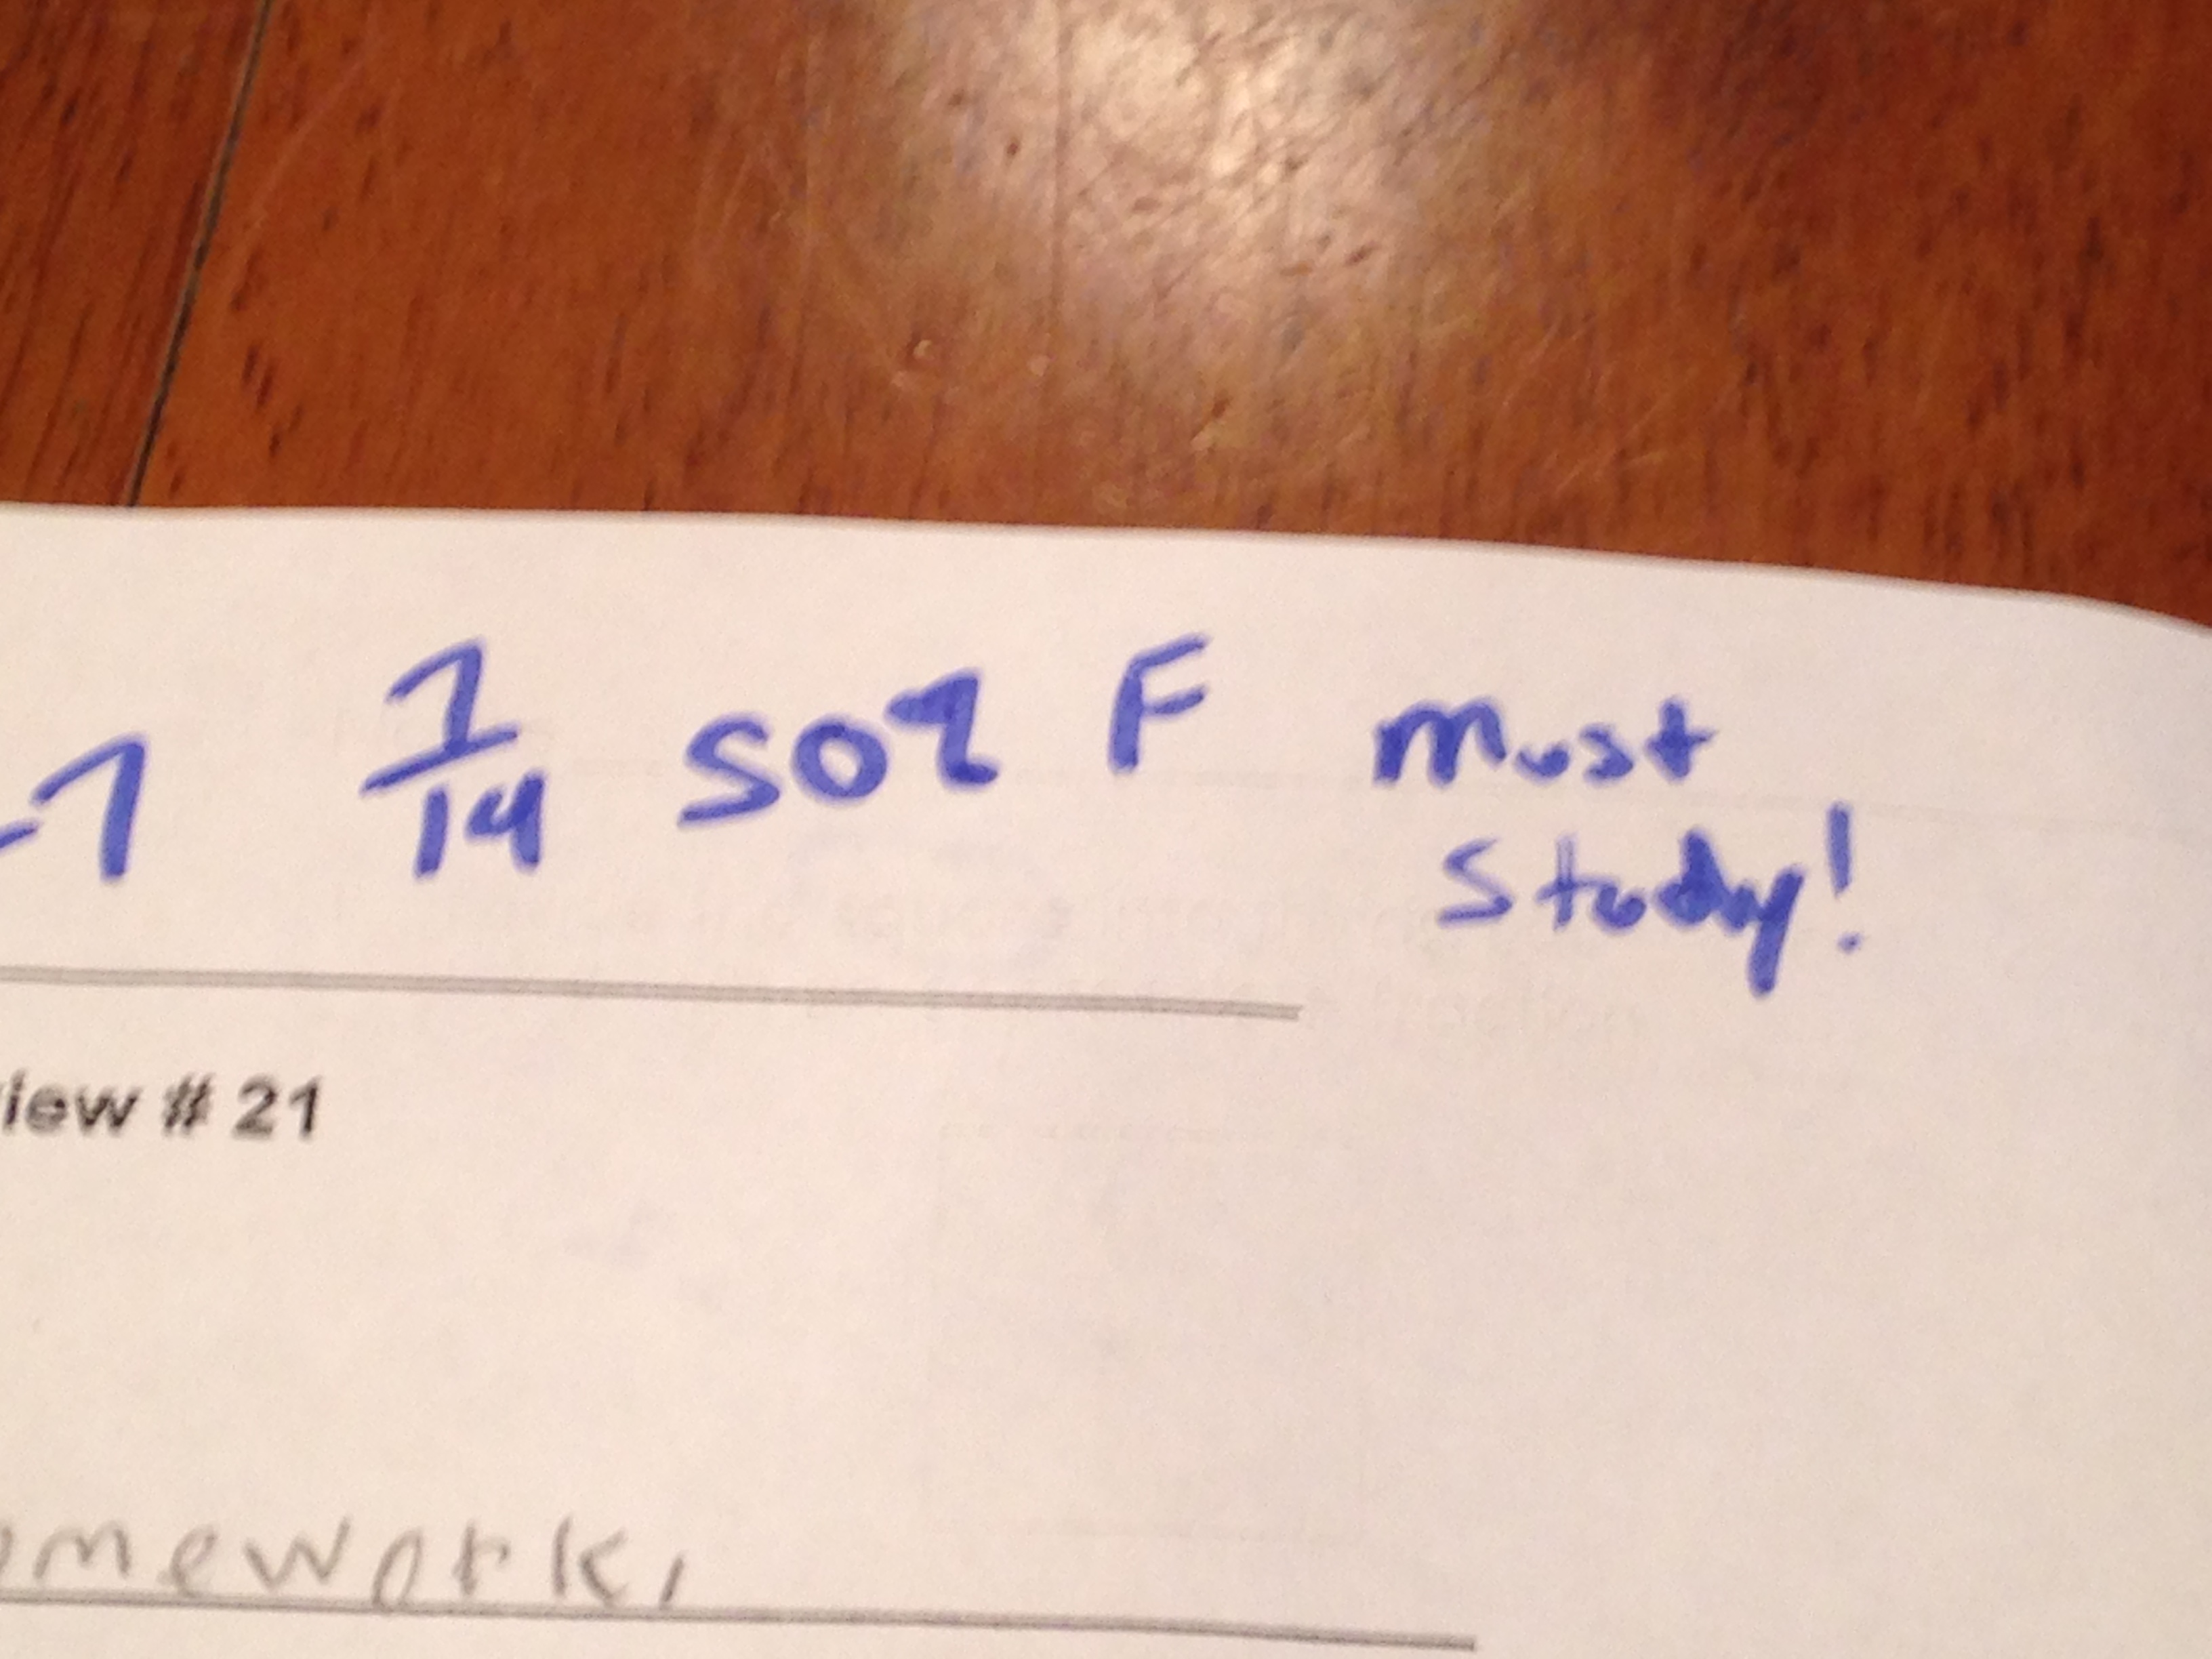 -7 7/14 50% F must
study!
iew # 21
omework,